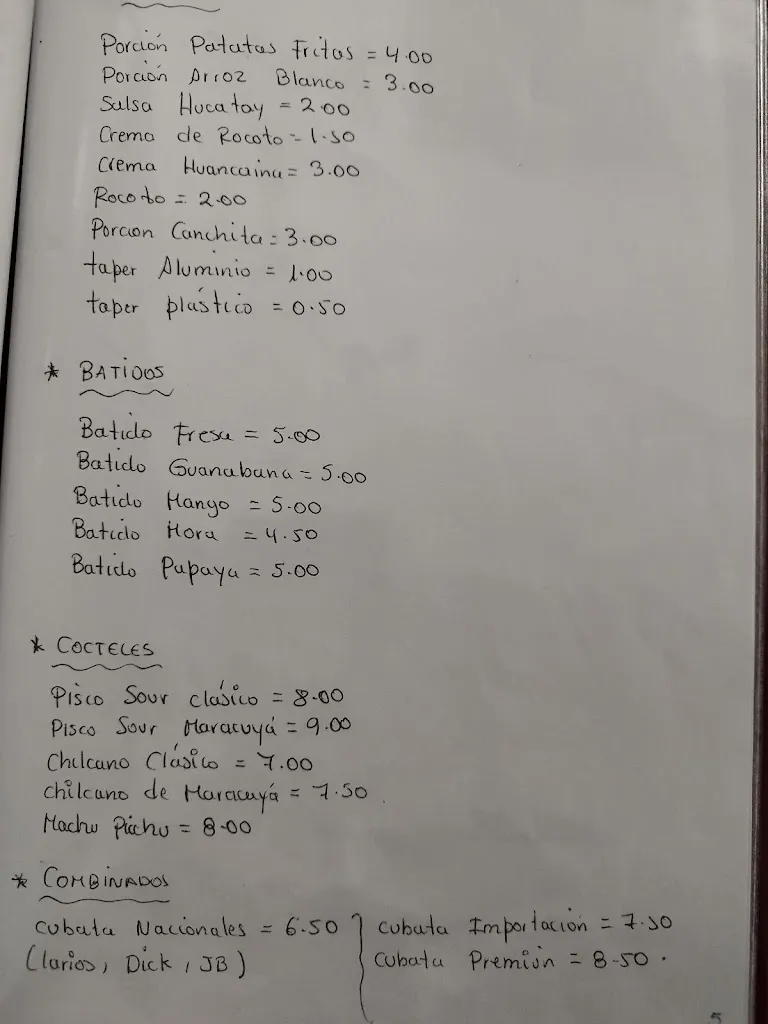 Porción Patatas Fritas = 4.00
Porción Arroz Blanco = 3.00
Salsa Hucatay = 2.00
Crema de Rocoto = 1.50
Crema Huancaina = 3.00
Rocoto = 2.00
Porcion Canchita = 3.00
taper Aluminio = 1.00
taper plástico = 0.50
* BATIDOS
Batido Fresa = 5.00
Batido Guanabana = 5.00
Batido Mango = 5.00
Batido Mora = 4.50
Batido Papaya = 5.00
* COCTELES
Pisco Sour clásico = 8.00
Pisco Sour Maracuyá = 9.00
Chilcano Clásico = 7.00
chilcano de Maracuyá = 7.50
Machu Picchu = 8.00
* COMBINADOS
cubata Nacionales = 6.50
(larios, Dick, JB)
cubata Importación = 7.50
cubata Premiún = 8.50.
5